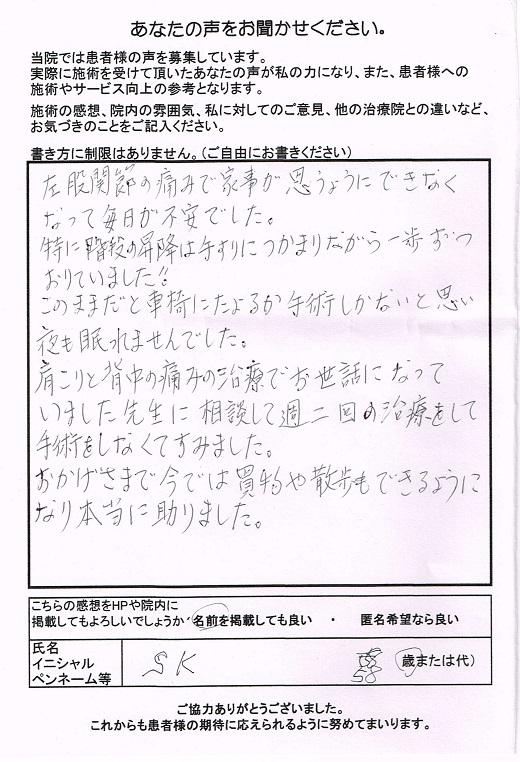 あなたの声をお聞かせください。
当院では患者様の声を募集しています。
実際に施術を受けて頂いたあなたの声が私の力になり、また、患者様への
施術やサービス向上の参考となります。
施術の感想、院内の雰囲気、私に対してのご意見、他の治療院との違いなど、
お気づきのことをご記入ください。
書き方に制限はありません。（ご自由にお書きください）
左股関節の痛みで家事が思うようにできなく
なって毎日が不安でした。
特に階段の昇降は手すりにつかまりながら一歩ずつ
おりていました!!
このままだと車椅にたよるか手術しかないと思い
夜も眠れませんでした。
肩こりと背中の痛みの治療でお世話になって
いました先生に相談して週二回の治療をして
手術をしなくてすみました。
おかげさまで今では買物や散歩もできるように
なり本当に助りました。
こちらの感想をHPや院内に
掲載してもよろしいでしょうか 名前を掲載しても良い ・ 匿名希望なら良い
氏名
イニシャル
ペンネーム等
SK
58 歳または代）
ご協力ありがとうございました。
これからも患者様の期待に応えられるように努めてまいります。